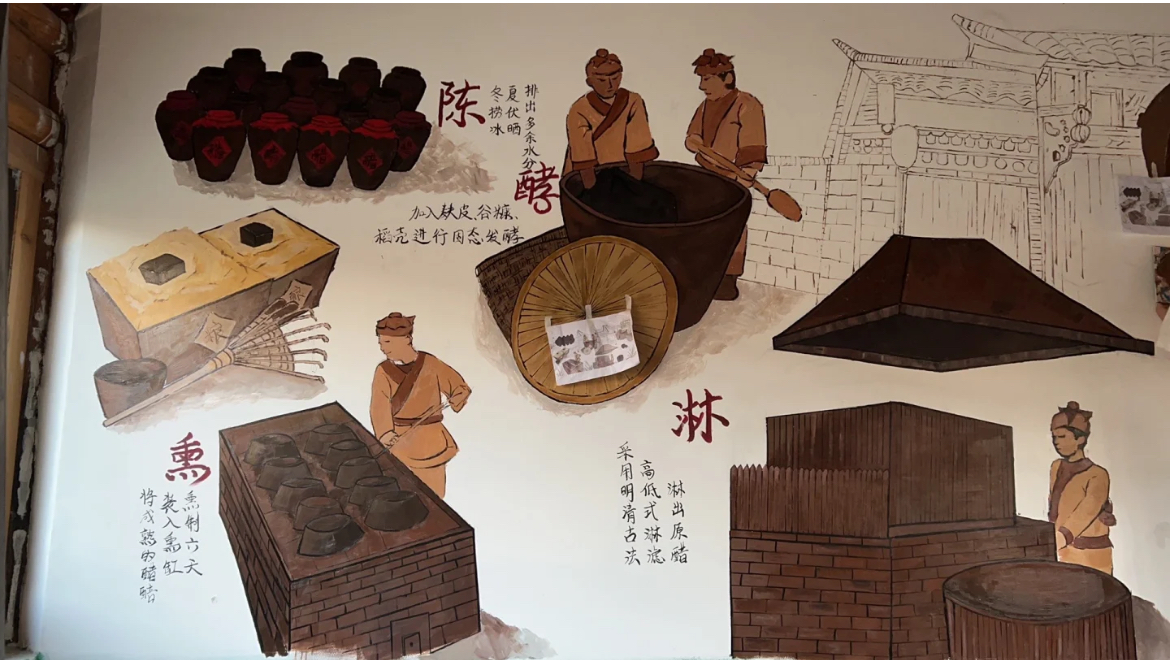 陈
冬捞冰
夏伏晒
排出多余水分
酵
加入麸皮、谷糠、
稻壳进行固态发酵
熏
将成熟的醋醅
装入熏缸
熏制六天
淋
采用明清古法
高低式淋滤
淋出原醋